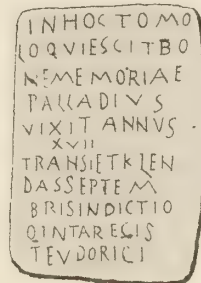 INHOCTOMO
LOQVIESCITBO
NEMEMORIAE
PALLADIVS
VIXIT ANNVS
XVII
TRANSIETKLEN
DASSEPTEM
BRISINDICTIO
QINTAREGIS
TEVDORICI